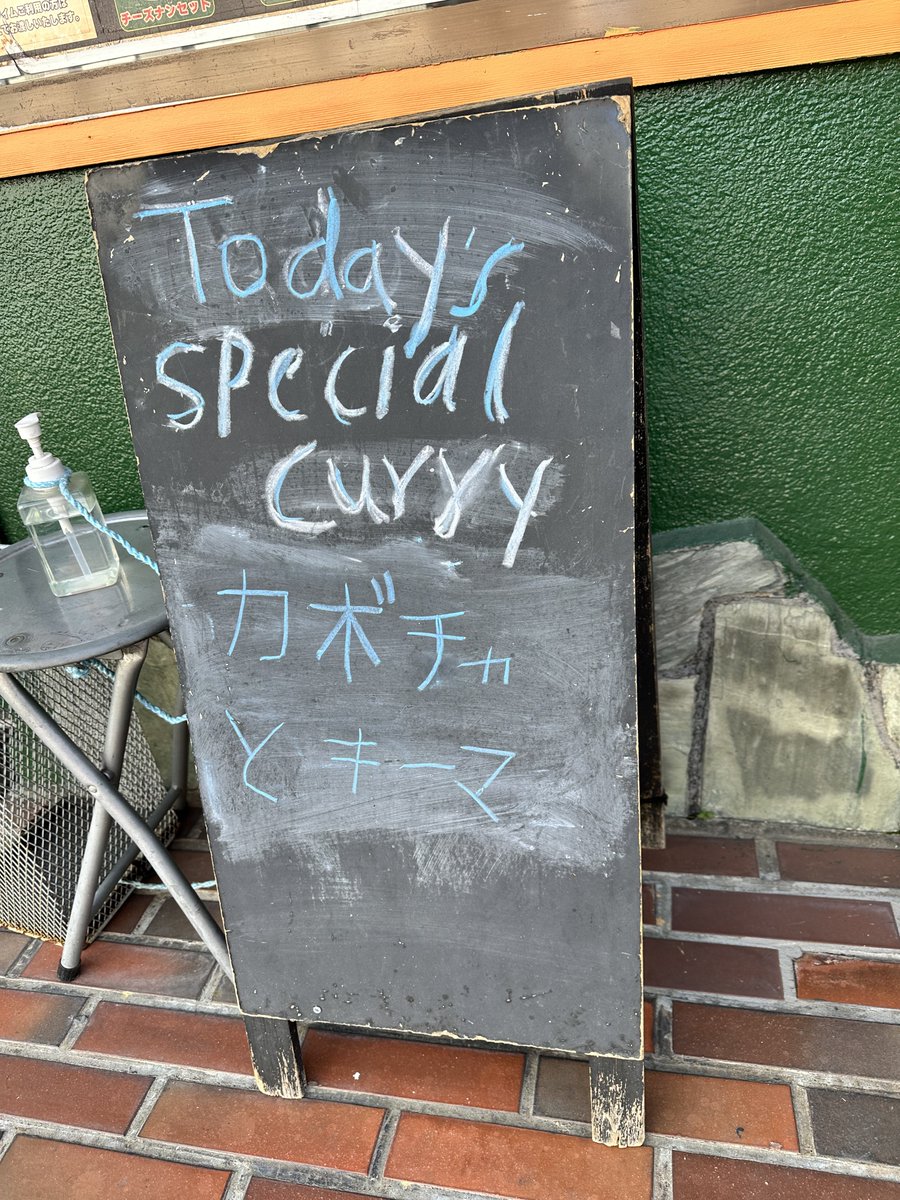 イムご利用の方は
お渡しいたします。
チーズナンセット
Today's
special
curry
カボチャ
とキーマ